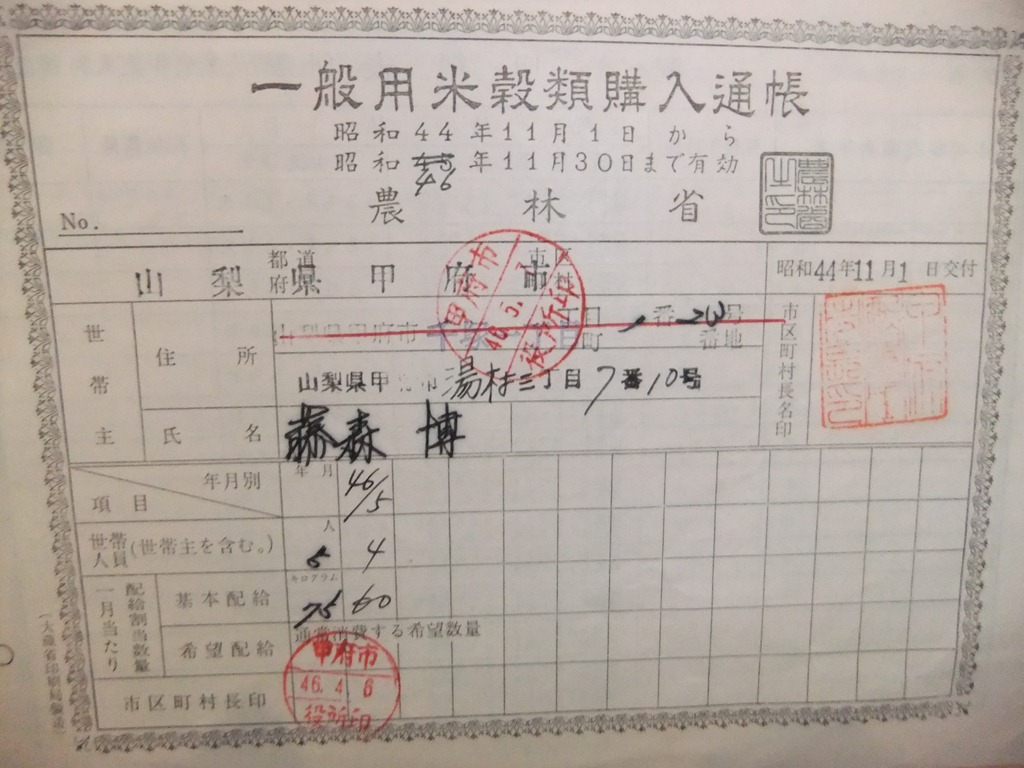 一般用米穀類購入通帳
昭和44年11月1日から
昭和45年11月30日まで有効
46
農林省
農林省之印
No.
山梨 都道府県 甲府市 市区
昭和44年11月1日交付
世帯主
住所
山梨県甲府市 丁目町 番 23号
番地
山梨県甲 市湯村三丁目7番10号
氏名
藤森 博
市区町村長名印
甲府市
46.5.
役所
年月別
項目
年 月
46/5
世帯人員(世帯主を含む。)
人
5
4
一月当たり配給割当数量
基本配給
キログラム
75
60
希望配給
通常消費する希望数量
市区町村長印
甲府市
46.4.6
役所印